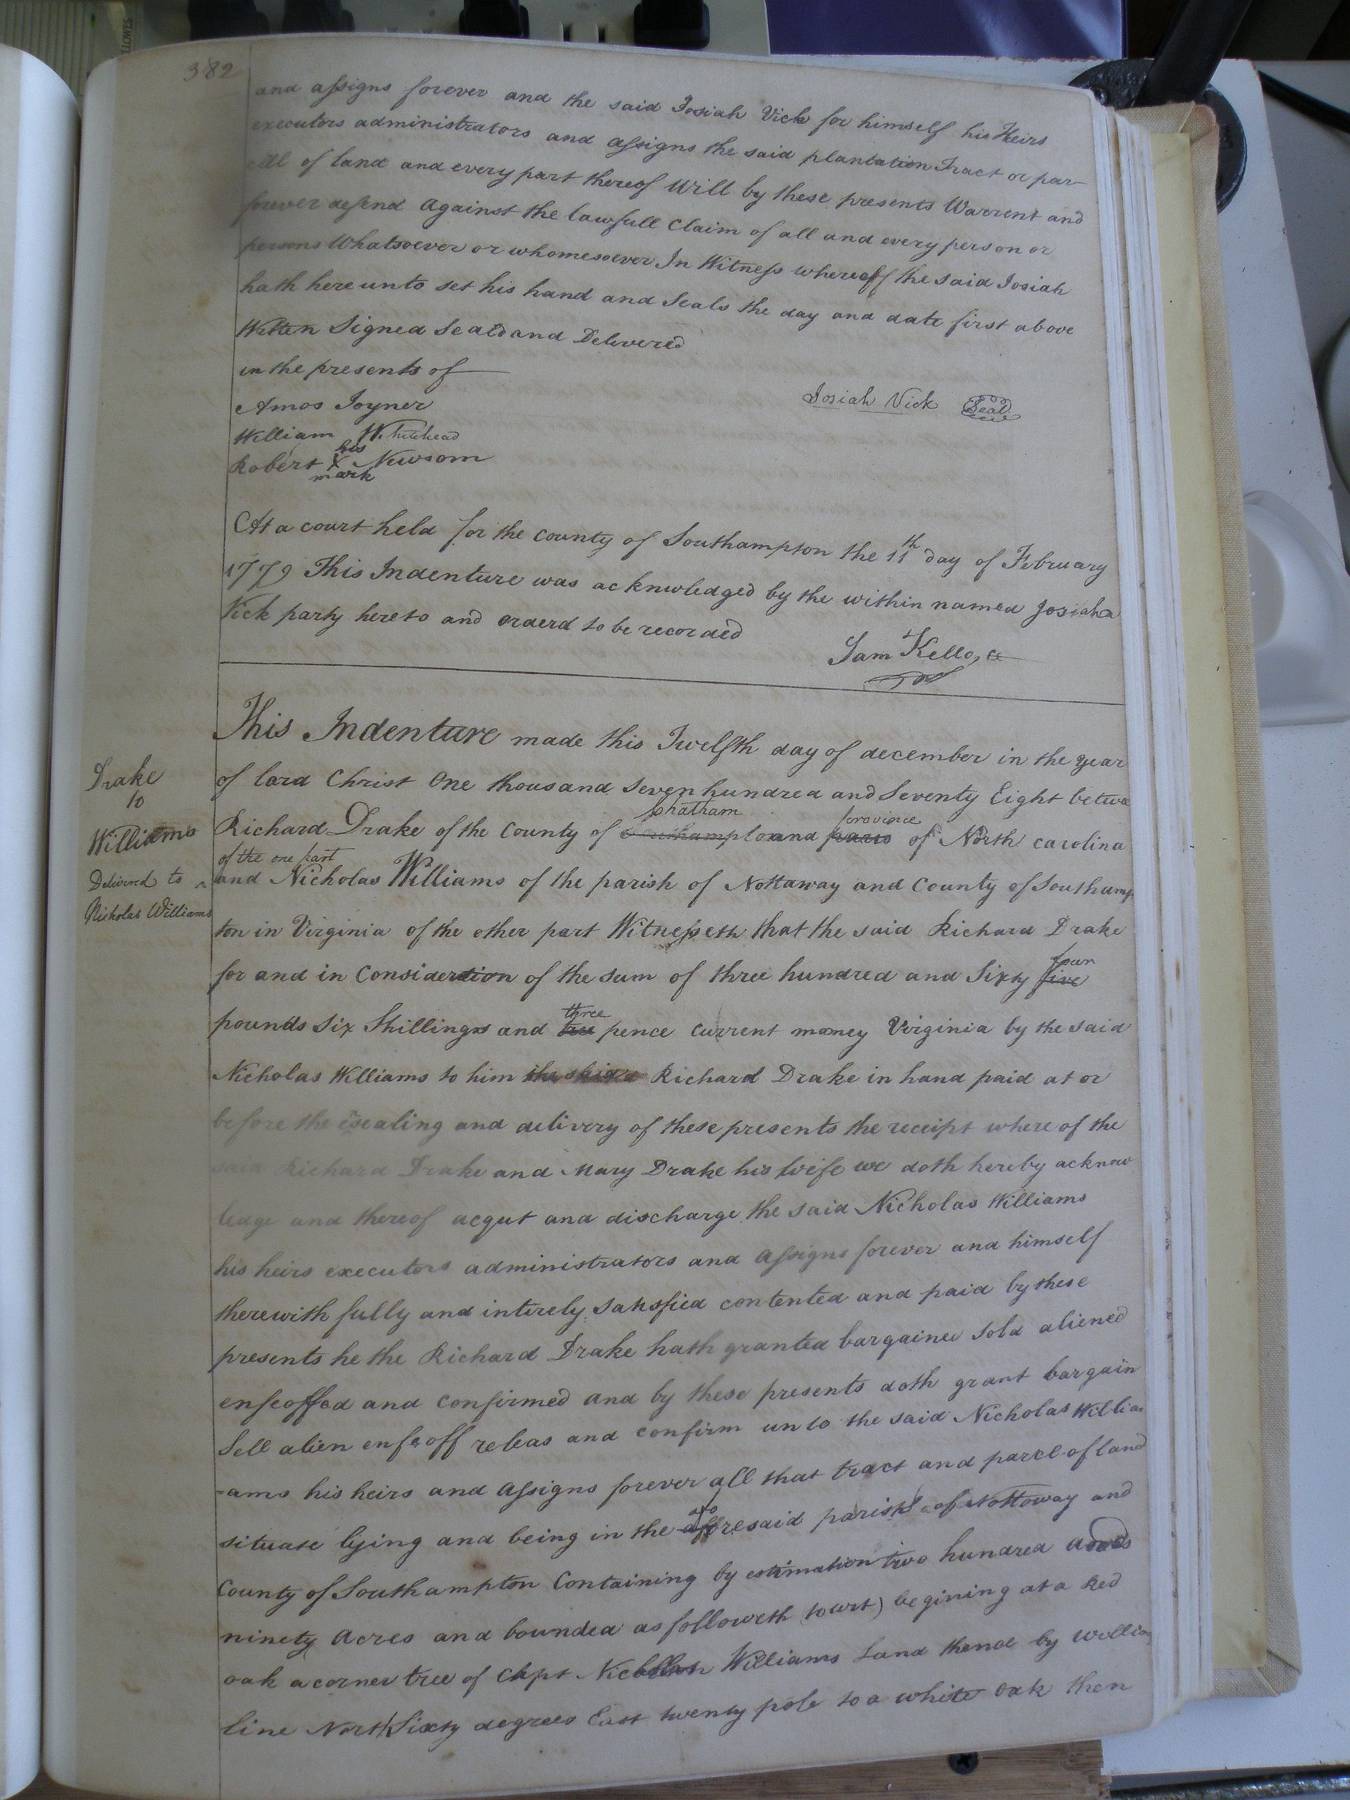 382
and assigns forever and the said Josiah Vick for himself his Heirs
executors administrators and assigns the said plantation Tract or par-
cell of land and every part thereof Will by these presents Warrent and
forever defend against the lawfull Claim of all and every person or
persons Whatsoever or whomesoever In Witness whereoff the said Josiah
hath here unto set his hand and Seals the day and date first above
Written Signed Seald and Delivered
in the presents of
Josiah Vick Seal
Amos Joyner
William Whitehead
his
Robert X Newsom
mark
At a court held for the county of Southampton the 11th day of February
1779 This Indenture was acknwledged by the within named Josiah
Vick party hereto and orderd to be recorded
Sam Kello, Ct
Drake
to
Williams
Delivered to
Nicholas Williams
This Indenture made this Twelfth day of december in the year
of lord Christ One thousand Seven hundred and Seventy Eight betwe
Chatham province
Richard Drake of the County of Southampton and of North carolina
of the one part
and Nicholas Williams of the parish of Nottaway and County of Southamp
ton in Virginia of the other part Witnesseth that the said Richard Drake
four
for and in Consideration of the sum of three hundred and Sixty five
three
pounds Six Shillings and pence current money Virginia by the said
Nicholas Williams to him Richard Drake in hand paid at or
before the sealing and delivery of these presents the receipt where of the
said Richard Drake and Mary Drake his Wife we doth hereby acknow
ledge and thereof acqut and discharge the said Nicholas Williams
his heirs executors administrators and assigns forever and himself
therewith fully and intirely satisfied contented and paid by these
presents he the Richard Drake hath granted bargained sold aliened
enfeoffed and confirmed and by these presents doth grant bargain
Sell alien enfeoff releas and confirm unto the said Nicholas Willia
-ams his heirs and assigns forever all that tract and parcel of land
situate lying and being in the afforesaid parish of Nottoway and
County of Southampton Containing by estimation two hundred
ninety Acres and bounded as followeth (towit) begining at a Red
oak a corner tree of Capt Williams Land thence by William
line North Sixty degrees East twenty pole to a white oak then